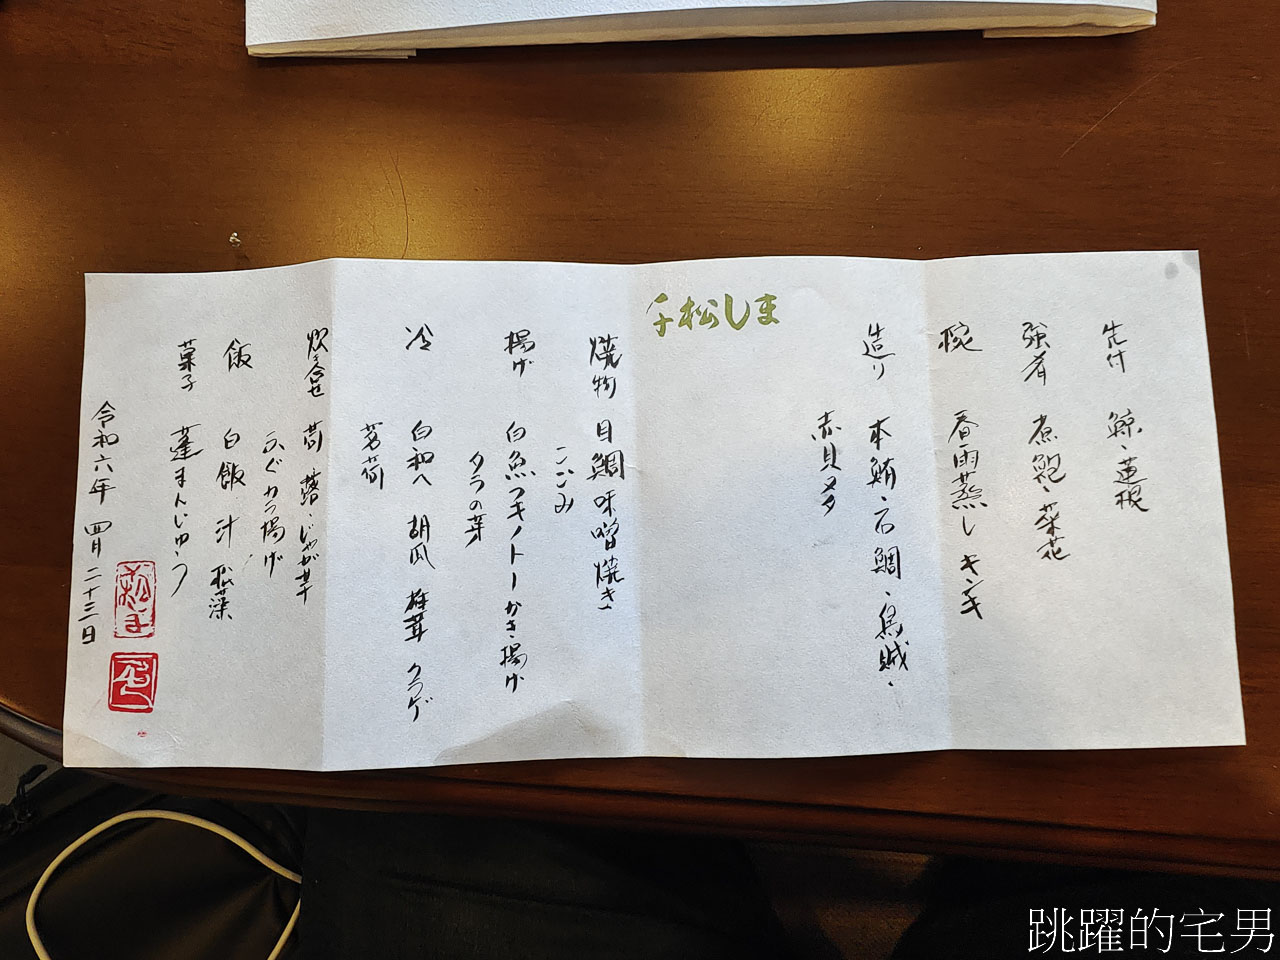 先付 鯨、蓮根
強肴 煮鮑、菜花
椀 春雨蒸し キンキ
造り 本鮪、石鯛、鳥賊、
赤貝
千松しま
焼物 目鯛味噌焼き
こごみ
揚げ 白魚フキノトーかき揚げ
タラの芽
冷 白和へ 胡瓜 椎茸 クラゲ
茗荷
炊き合せ 筍 蕗、じゃが芋
ふぐカラ揚げ
飯 白飯 汁 松藻
菓子 蓬まんじゅう
令和六年 四月二十三日
跳躍的宅男